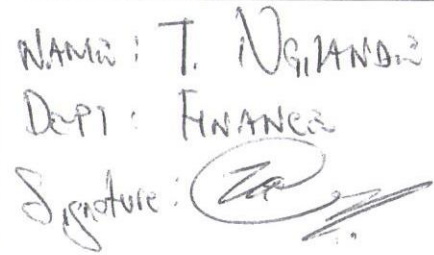 NAME: T. NGILANDE
DEPT: FINANCE
Signature: